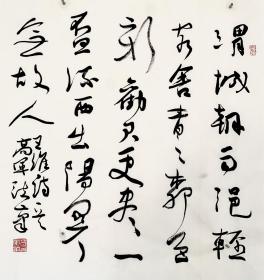 渭城朝雨浥轻
客舍青々柳色
新劝君更尽一
杯酒西出阳关
无故人
王维诗一首